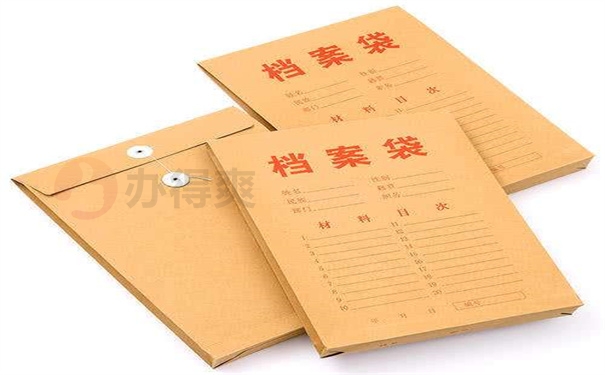 档案袋
姓名 性别
民族 籍贯
部门 职务
材料目次
档案袋
姓名 性别
民族 籍贯
部门 职务
材料目次
1 11
2 12
3 13
4 14
5 15
6 16
7 17
8 18
9 19
10 20
年 月 日 编号
办得爽